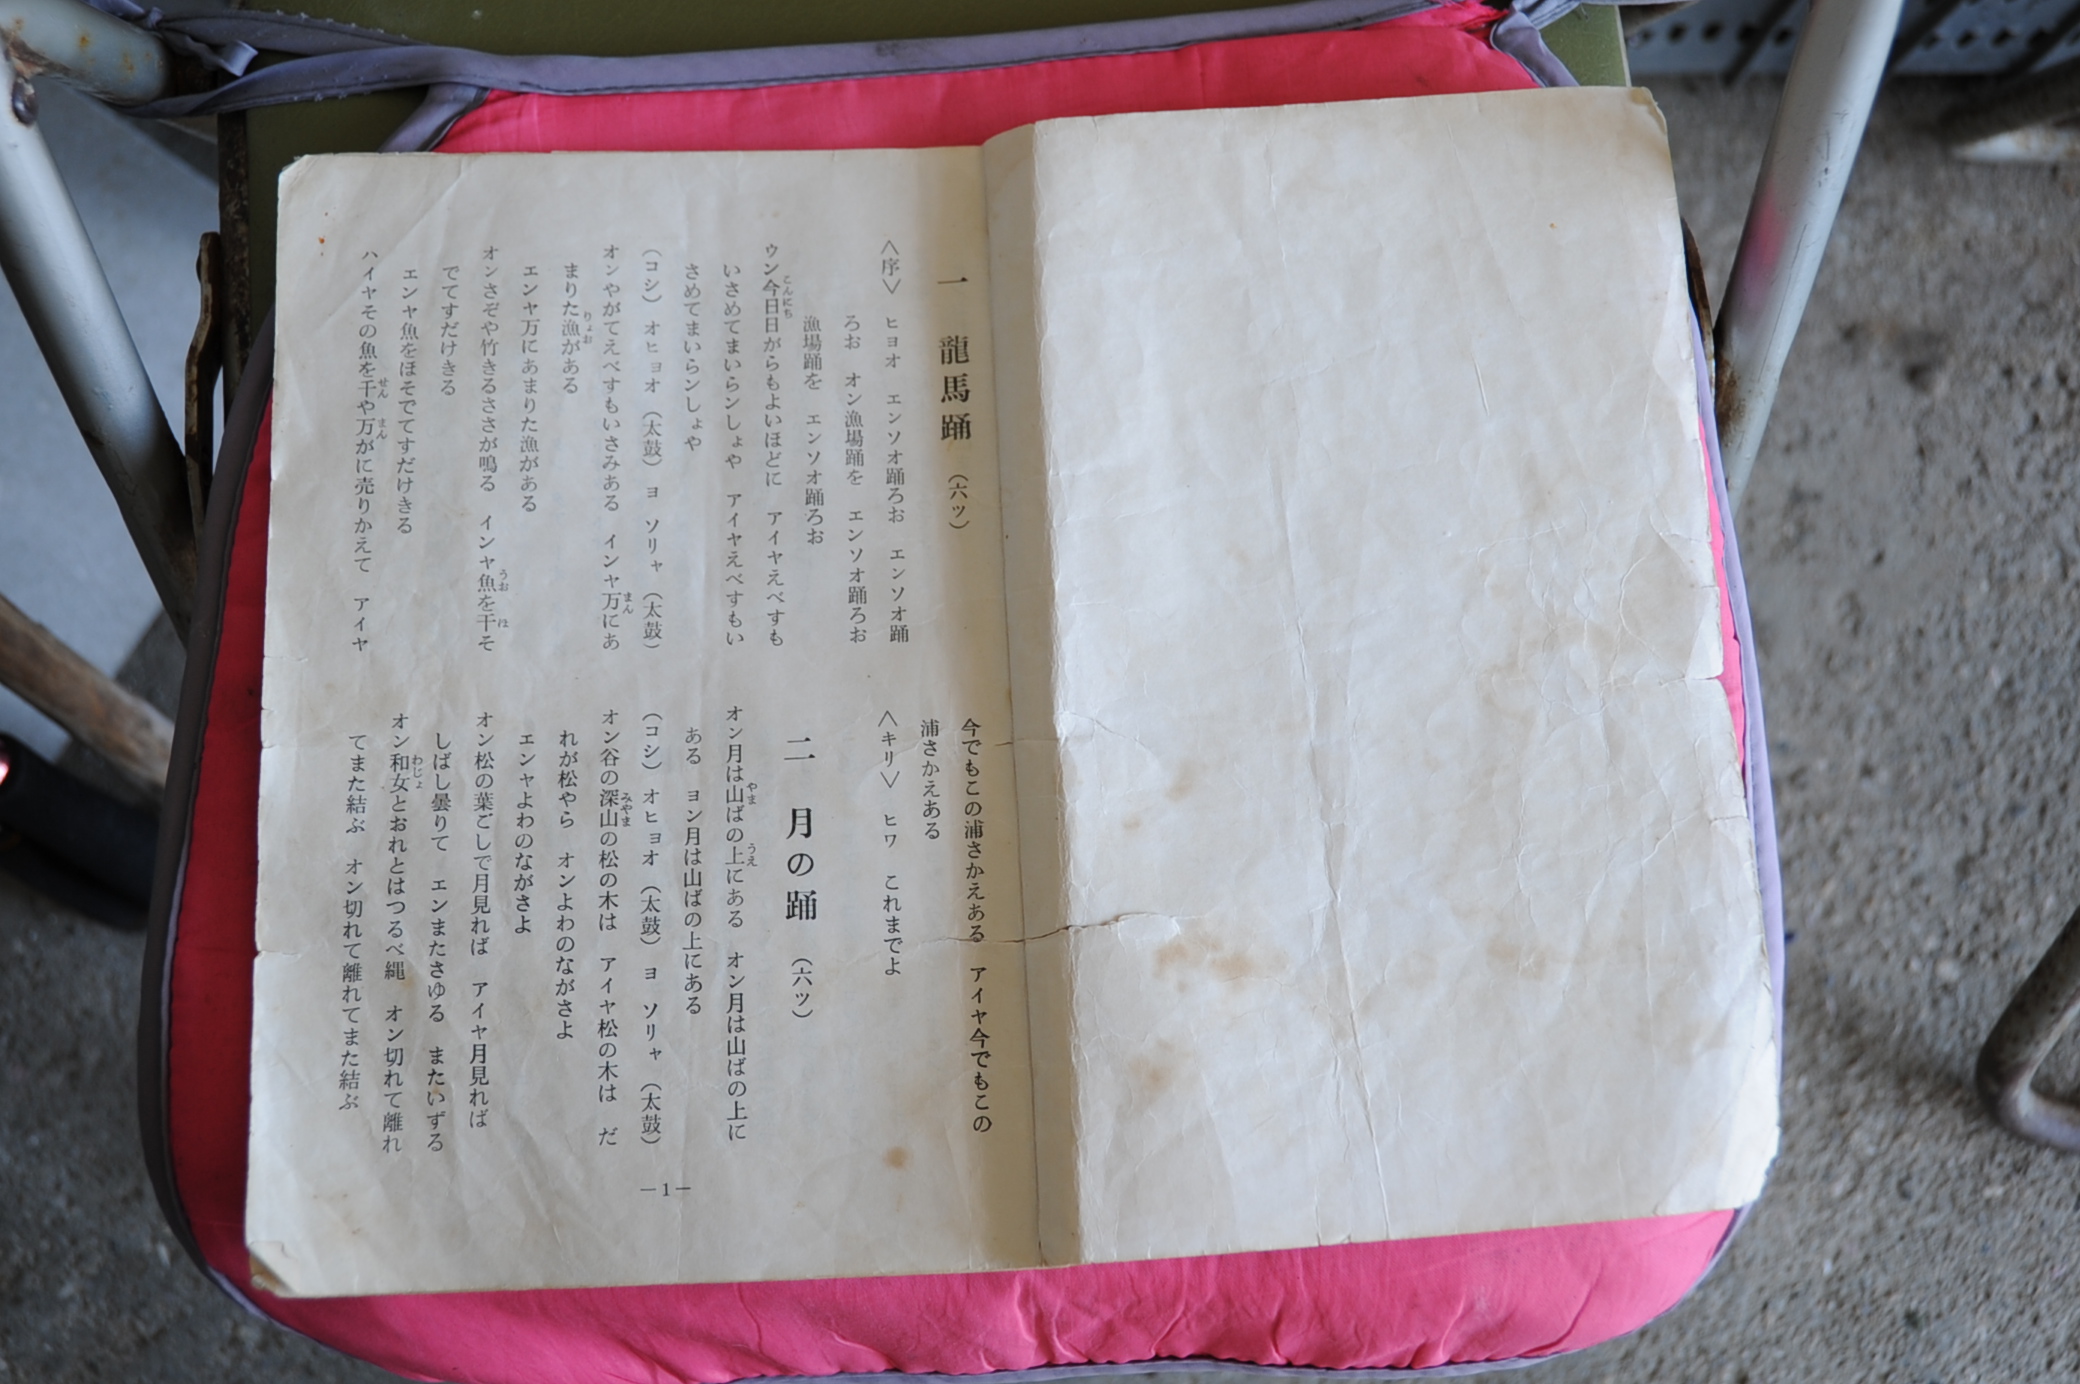 一　龍馬踊　（六ッ）
〈序〉　ヒョオ　エンソオ踊ろお　エンソオ踊
ろお　オン漁場踊を　エンソオ踊ろお
漁場踊を　エンソオ踊ろお
ウン今日日がらもよいほどに　アイヤえべすも
いさめてまいらンしょや　アイヤえべすもい
さめてまいらンしょや
（コシ）オヒョオ（太鼓）ヨ　ソリャ（太鼓）
オンやがてえべすもいさみある　インヤ万にあ
まりた漁がある
エンヤ万にあまりた漁がある
オンさぞや竹きるささが鳴る　インヤ魚を干そ
でてすだけきる
エンヤ魚をほそでてすだけきる
ハイヤその魚を千や万がに売りかえて　アイヤ
今でもこの浦さかえある　アイヤ今でもこの
浦さかえある
〈キリ〉　ヒワ　これまでよ
二　月の踊　（六ッ）
オン月は山ばの上にある　オン月は山ばの上に
ある　ヨン月は山ばの上にある
（コシ）オヒョオ（太鼓）ヨ　ソリャ（太鼓）
オン谷の深山の松の木は　アイヤ松の木は　だ
れが松やら　オンよわのながさよ
エンヤよわのながさよ
オン松の葉ごしで月見れば　アイヤ月見れば
しばし曇りて　エンまたさゆる　またいずる
オン和女とおれとはつるべ縄　オン切れて離れ
てまた結ぶ　オン切れて離れてまた結ぶ
―1―